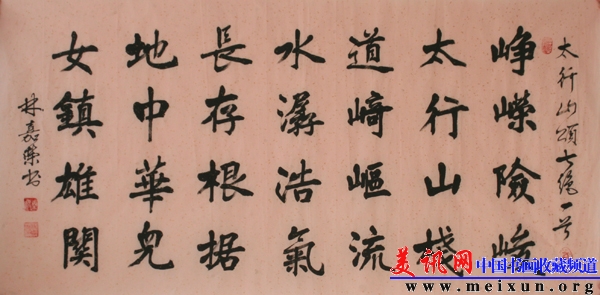 太行山頌七绝一首
峥嶸險峻
太行山棧
道崎嶇流
水潺浩氣
長存根据
地中華兒
女鎮雄関
林嘉榮书
美讯网 中国书画收藏频道
www.meixun.org